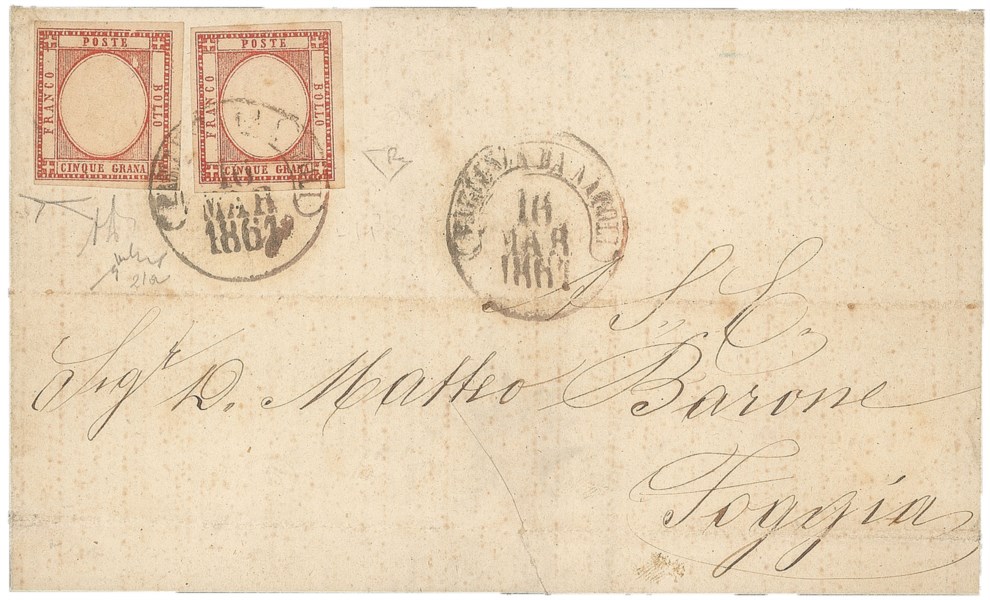 POSTE
FRANCO
BOLLO
CINQUE GRANA
POSTE
FRANCO
BOLLO
CINQUE GRANA
MAR
1861
PARTENZA DA NAPOLI
16
MAR
1861
S. E.
Sig.r D. Matteo Barone
Foggia